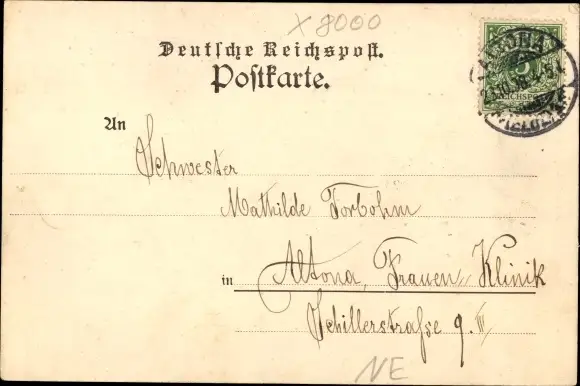 X 8000
Deutsche Reichspost.
Postkarte.
ALTONA
5
REICHSPOST
An
Schwester
Mathilde Forbohm
in Altona, Frauen-Klinik
Schillerstraße 9. III
NE